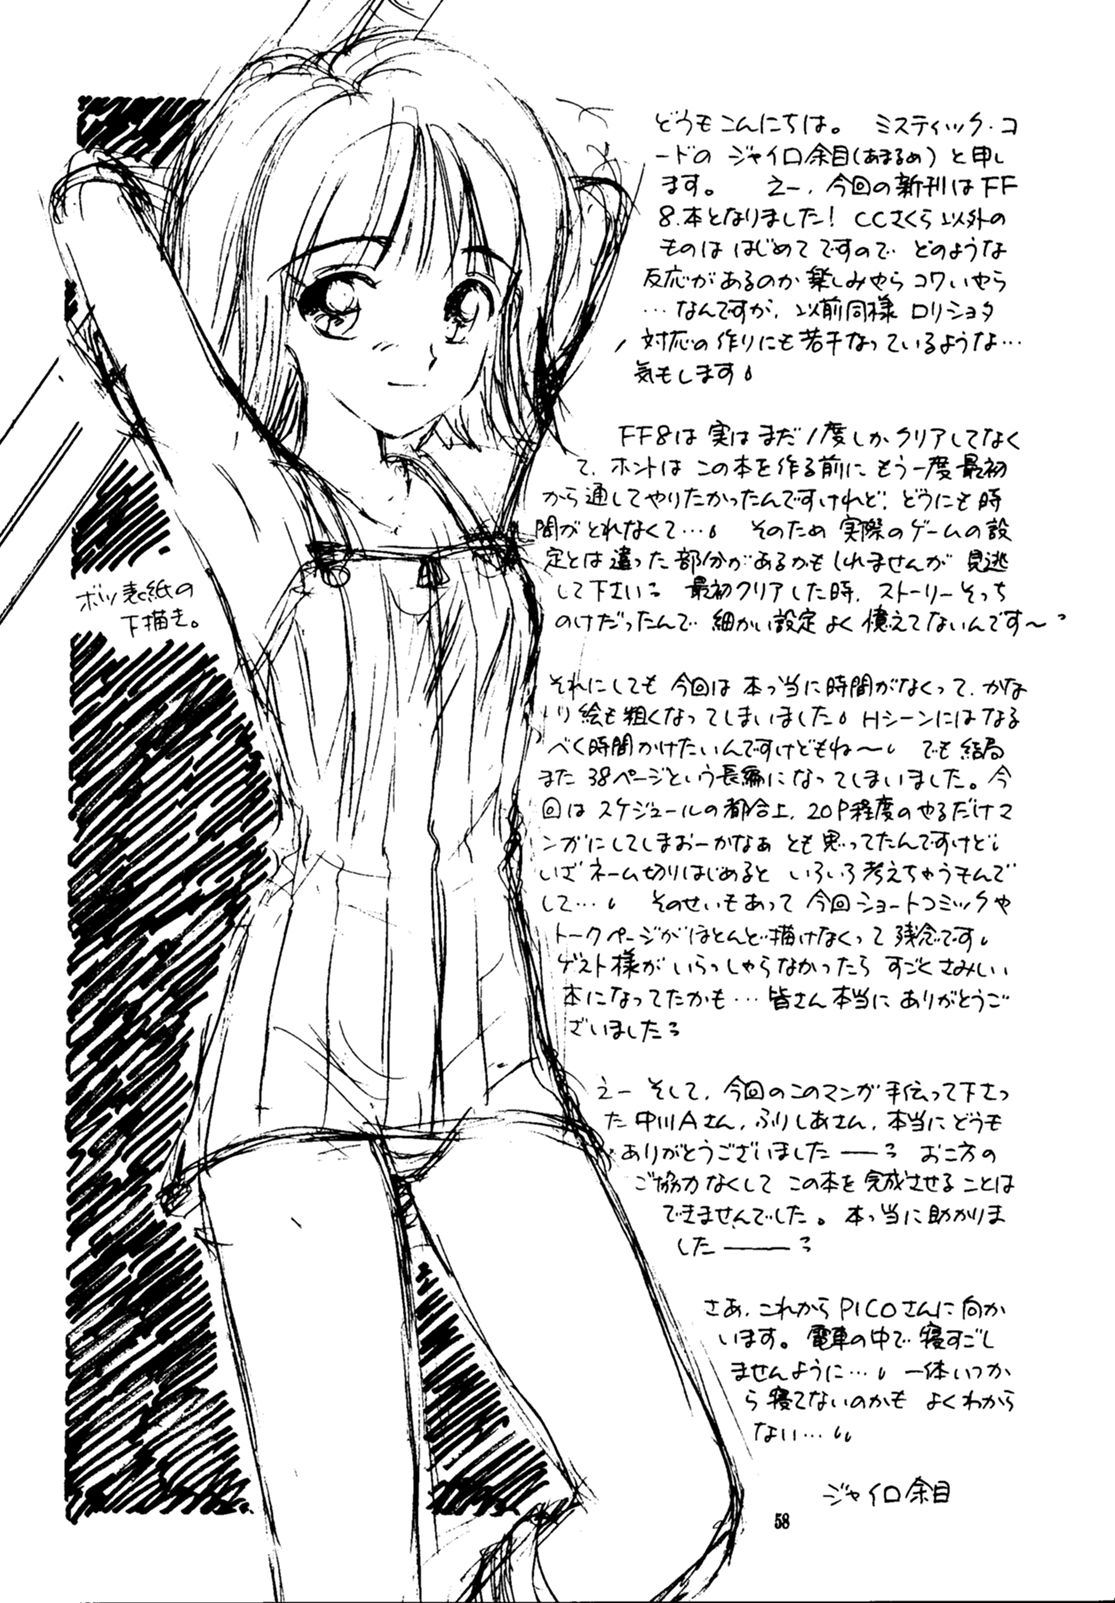 どうもこんにちは。 ミスティック・コ
ードの ジャイロ余目(あまるめ)と申し
ます。 えー、今回の新刊はFF
8.本となりました! CCさくら以外の
ものは はじめて ですので どのような
反応があるのか 楽しみやら コワいやら
…なんですが、以前同様 ロリショタ
対応の作りにも若干なっているような…
気もします。
FF8は 実は まだ1度しか クリアしてなく
て、ホントは この本を作る前に もう一度 最初
から通してやりたかったんですけれど、どうにも時
間がとれなくて…。 そのため 実際のゲームの設
定とは違った部分があるかもしれませんが 見逃
して下さいる 最初クリアした時、ストーリーそっち
のけだったんで 細かい設定 よく憶えてないんです〜っ
ボツ表紙の
下描き。
それにしても 今回は 本っ当に時間がなくって、かな
り 絵も粗くなってしまいました。Hシーンにはなる
べく時間かけたいんですけどもね〜。 でも 結局
また 38ページという長編になってしまいました。今
回は スケジュールの都合上、20P程度のやるだけマ
ンガにしてしまおーかなぁ とも 思ってたんですけど、
いざ ネーム切りはじめると いろいろ考えちゃうもんで
して…。 そのせいもあって 今回ショートコミックや
トークページが ほとんど描けなくって 残念です。
ゲスト様が いらっしゃらなかったら すごくさみしい
本になってたかも…皆さん本当に ありがとうご
ざいましたる
えー そして、今回のこのマンガ手伝って下さっ
た 中川Aさん、ふりしあさん、本当に どうも
ありがとうございました——る お二方の
ご協力なくして この本を 完成させることは
できませんでした。本っ当に助かりま
した——る
さあ、これから PICOさんに向か
います。電車の中で 寝すごし
ませんように…。 一体いつか
ら 寝てないのかも よくわから
ない…。
ジャイロ余目
58